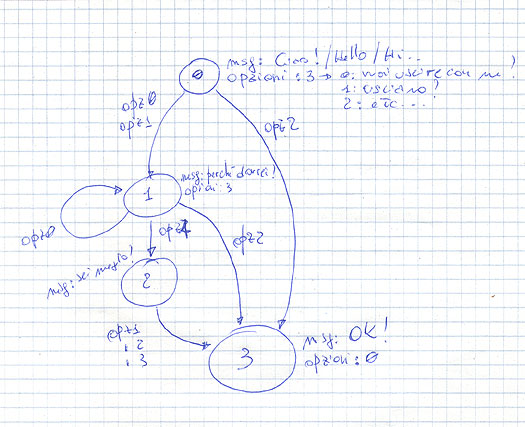 msg: Ciao! / Hello / Hi...
0
opzioni: 3 → 0: vuoi uscire con me?
1: usciamo?
2: etc...!
opz0
opz1
opz2
msg: perché dovrei!
opzioni: 3
1
opz0
opz1
opz2
msg: sei
2
opz1
: 2
: 3
3
msg: OK!
opzioni: 0